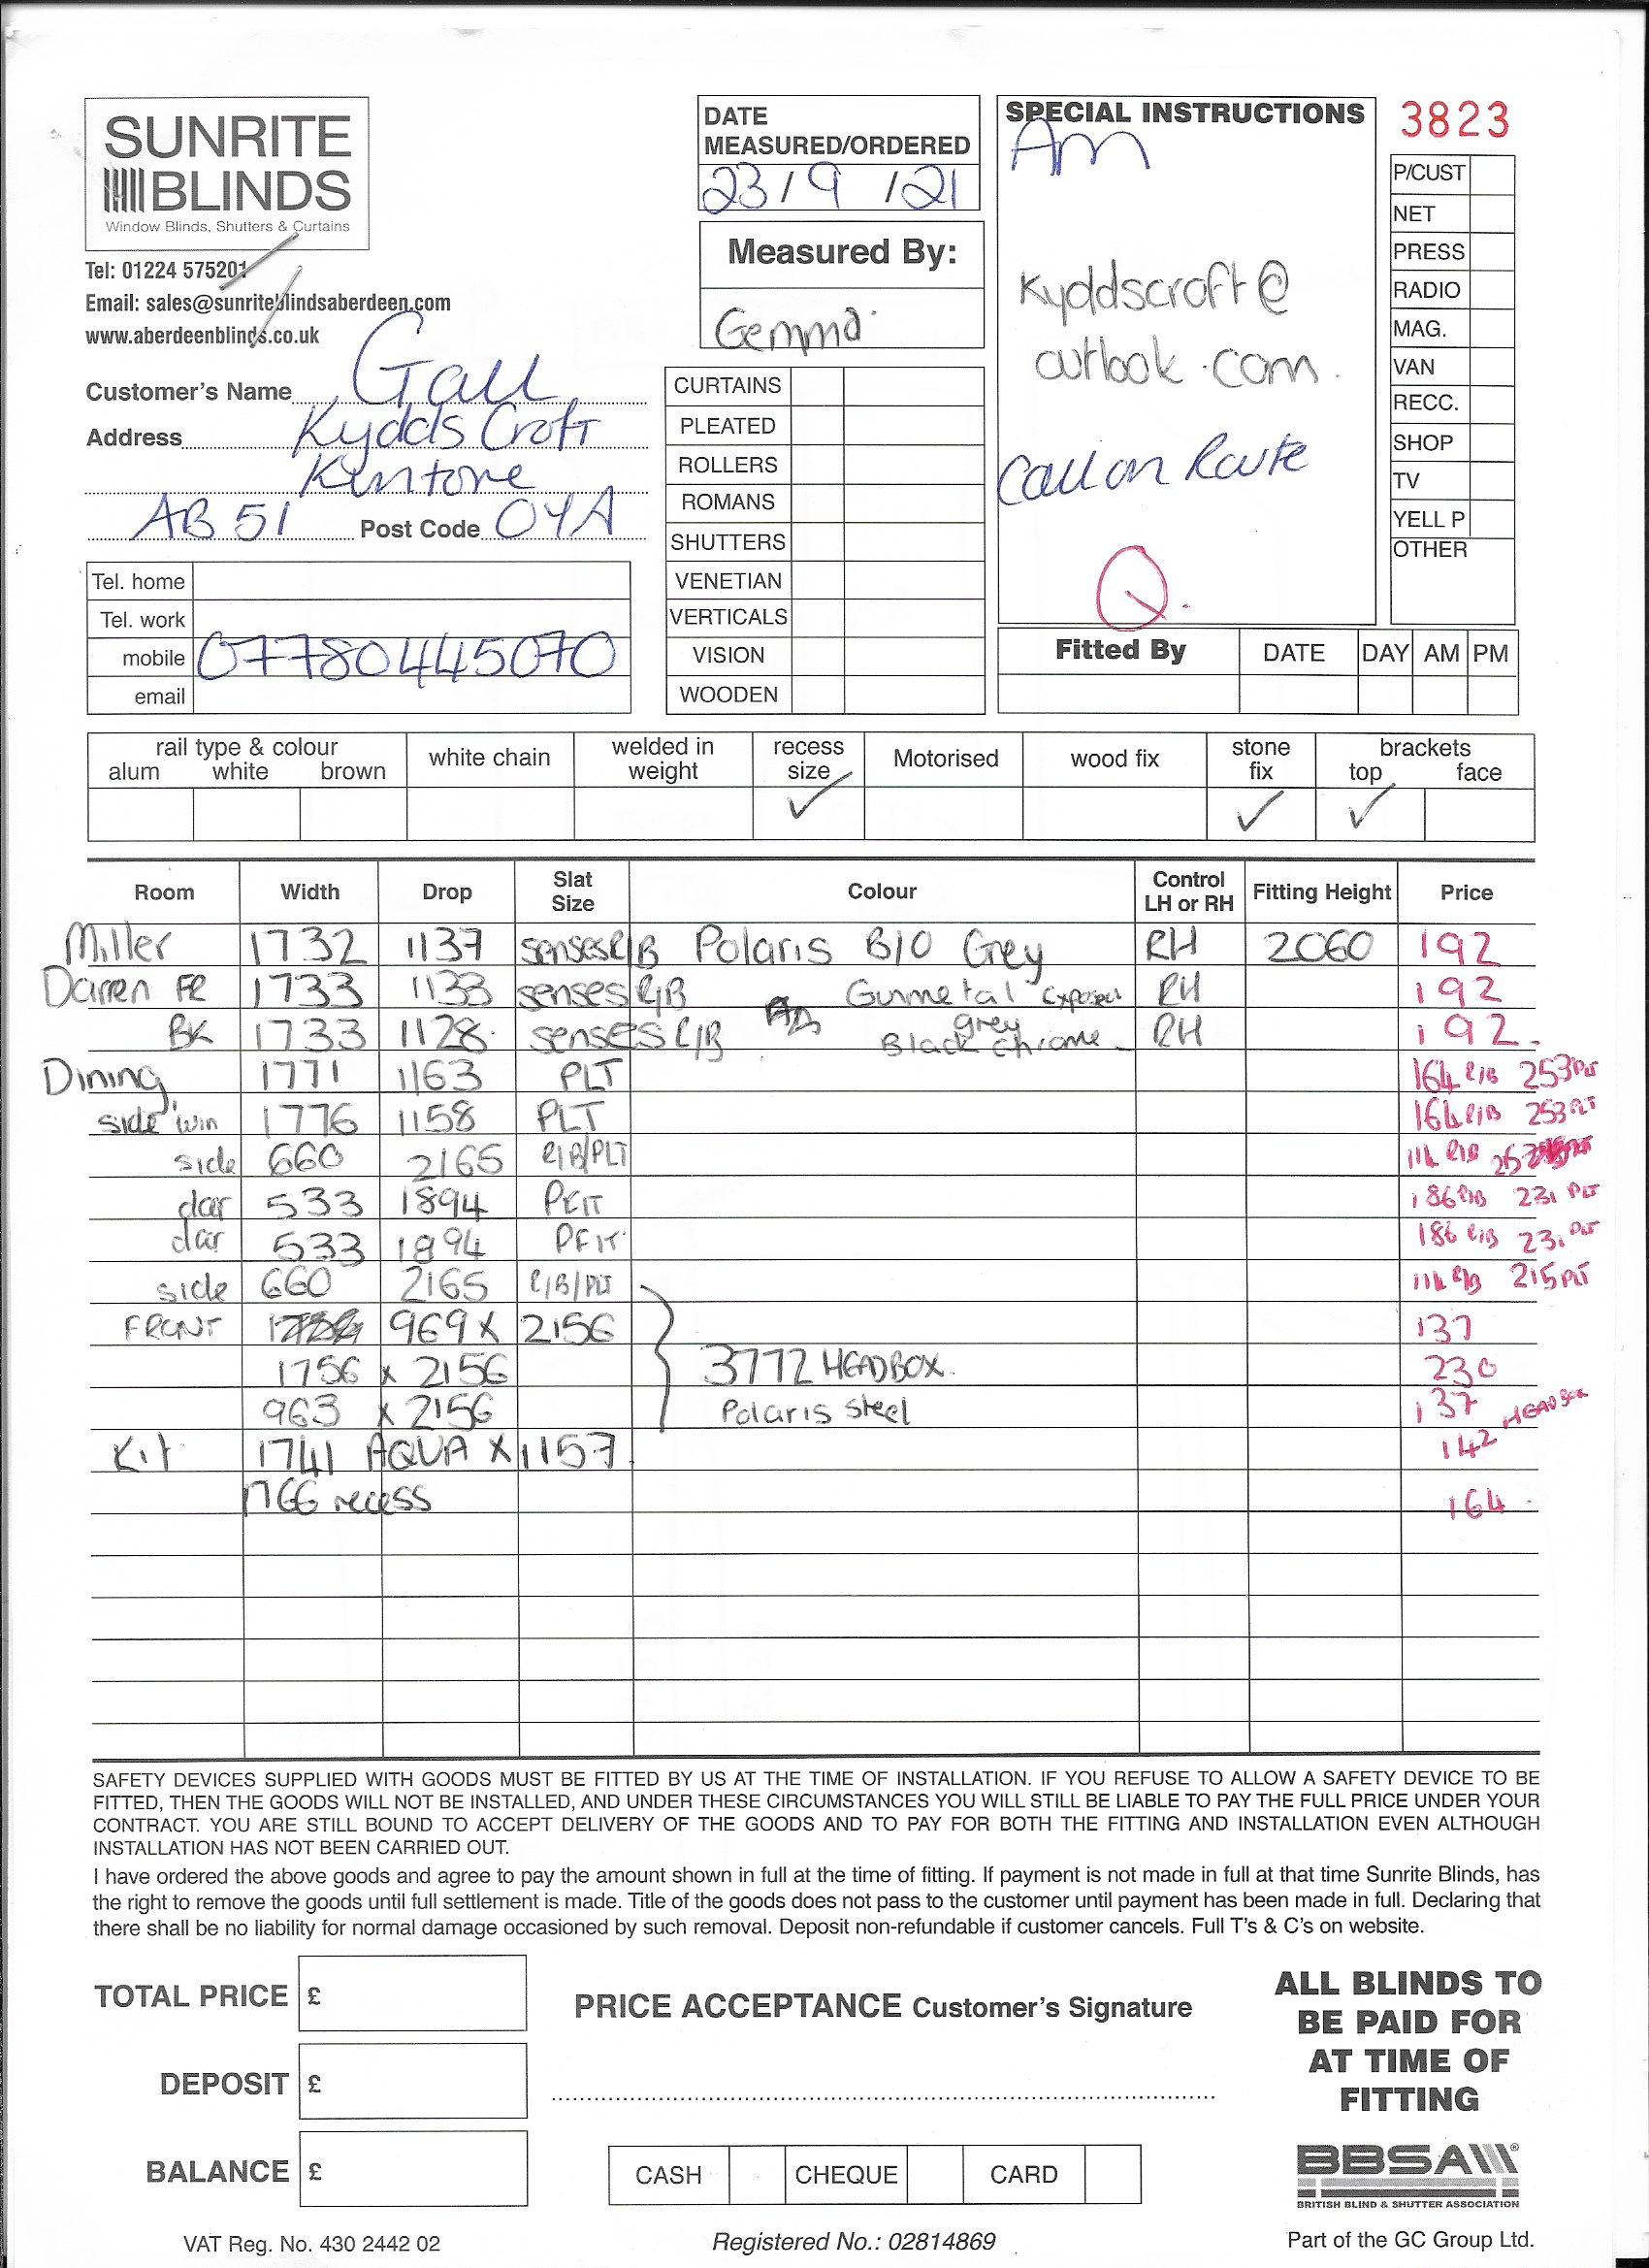 SUNRITE
BLINDS
Window Blinds, Shutters & Curtains
Tel: 01224 575201
Email: sales@sunriteblindsaberdeen.com
www.aberdeenblinds.co.uk
Customer's Name Gall
Address Kydds Croft
Kintore
AB 51 Post Code OYA
Tel. home
Tel. work
mobile 07780445070
email
DATE
MEASURED/ORDERED
23 / 9 / 21
Measured By:
Gemma
CURTAINS
PLEATED
ROLLERS
ROMANS
SHUTTERS
VENETIAN
VERTICALS
VISION
WOODEN
SPECIAL INSTRUCTIONS
Am
Kyddscroft@
outlook.com.
Call on Route
Q.
3823
P/CUST
NET
PRESS
RADIO
MAG.
VAN
RECC.
SHOP
TV
YELL P
OTHER
Fitted By DATE DAY AM PM
rail type & colour
alum white brown
white chain
welded in
weight
recess
size
✓
Motorised
wood fix
stone
fix
✓
brackets
top face
✓
Room Width Drop Slat Size Colour Control LH or RH Fitting Height Price
Miller 1732 1137 senses R/B Polaris B/O Grey RH 2060 192
Darren FR 1733 1133 senses R/B Gunmetal Exposed RH 192
BK 1733 1128 senses R/B grey Black Chrome RH 192
Dining 1771 1163 PLT 164 R/B 253 PLT
side win 1776 1158 PLT 164 R/B 253 PLT
side 660 2165 R/B/PLT 114 R/B
dar 533 1894 186 R/B 231 PLT
dar 533 1894 186 R/B 231 PLT
side 660 2165 R/B/PLT 114 R/B 215 PLT
FRONT 969 x 2156 137
1756 x 2156 3772 HEADBOX. 230
963 x 2156 Polaris Steel 137 HEADBOX
Kit 1741 AQUA x 1157 142
1766 recess 164
SAFETY DEVICES SUPPLIED WITH GOODS MUST BE FITTED BY US AT THE TIME OF INSTALLATION. IF YOU REFUSE TO ALLOW A SAFETY DEVICE TO BE
FITTED, THEN THE GOODS WILL NOT BE INSTALLED, AND UNDER THESE CIRCUMSTANCES YOU WILL STILL BE LIABLE TO PAY THE FULL PRICE UNDER YOUR
CONTRACT. YOU ARE STILL BOUND TO ACCEPT DELIVERY OF THE GOODS AND TO PAY FOR BOTH THE FITTING AND INSTALLATION EVEN ALTHOUGH
INSTALLATION HAS NOT BEEN CARRIED OUT.
I have ordered the above goods and agree to pay the amount shown in full at the time of fitting. If payment is not made in full at that time Sunrite Blinds, has
the right to remove the goods until full settlement is made. Title of the goods does not pass to the customer until payment has been made in full. Declaring that
there shall be no liability for normal damage occasioned by such removal. Deposit non-refundable if customer cancels. Full T's & C's on website.
TOTAL PRICE £
DEPOSIT £
BALANCE £
PRICE ACCEPTANCE Customer's Signature
CASH CHEQUE CARD
ALL BLINDS TO
BE PAID FOR
AT TIME OF
FITTING
BBSA
BRITISH BLIND & SHUTTER ASSOCIATION
VAT Reg. No. 430 2442 02 Registered No.: 02814869 Part of the GC Group Ltd.